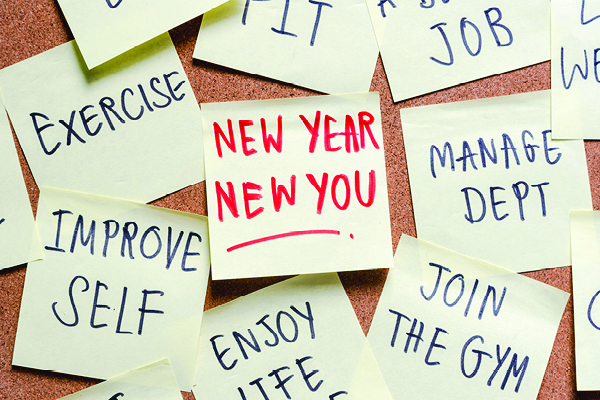 FIT
JOB
EXERCISE
NEW YEAR
NEW YOU
MANAGE
DEPT
IMPROVE
SELF
ENJOY
LIFE
JOIN
THE GYM